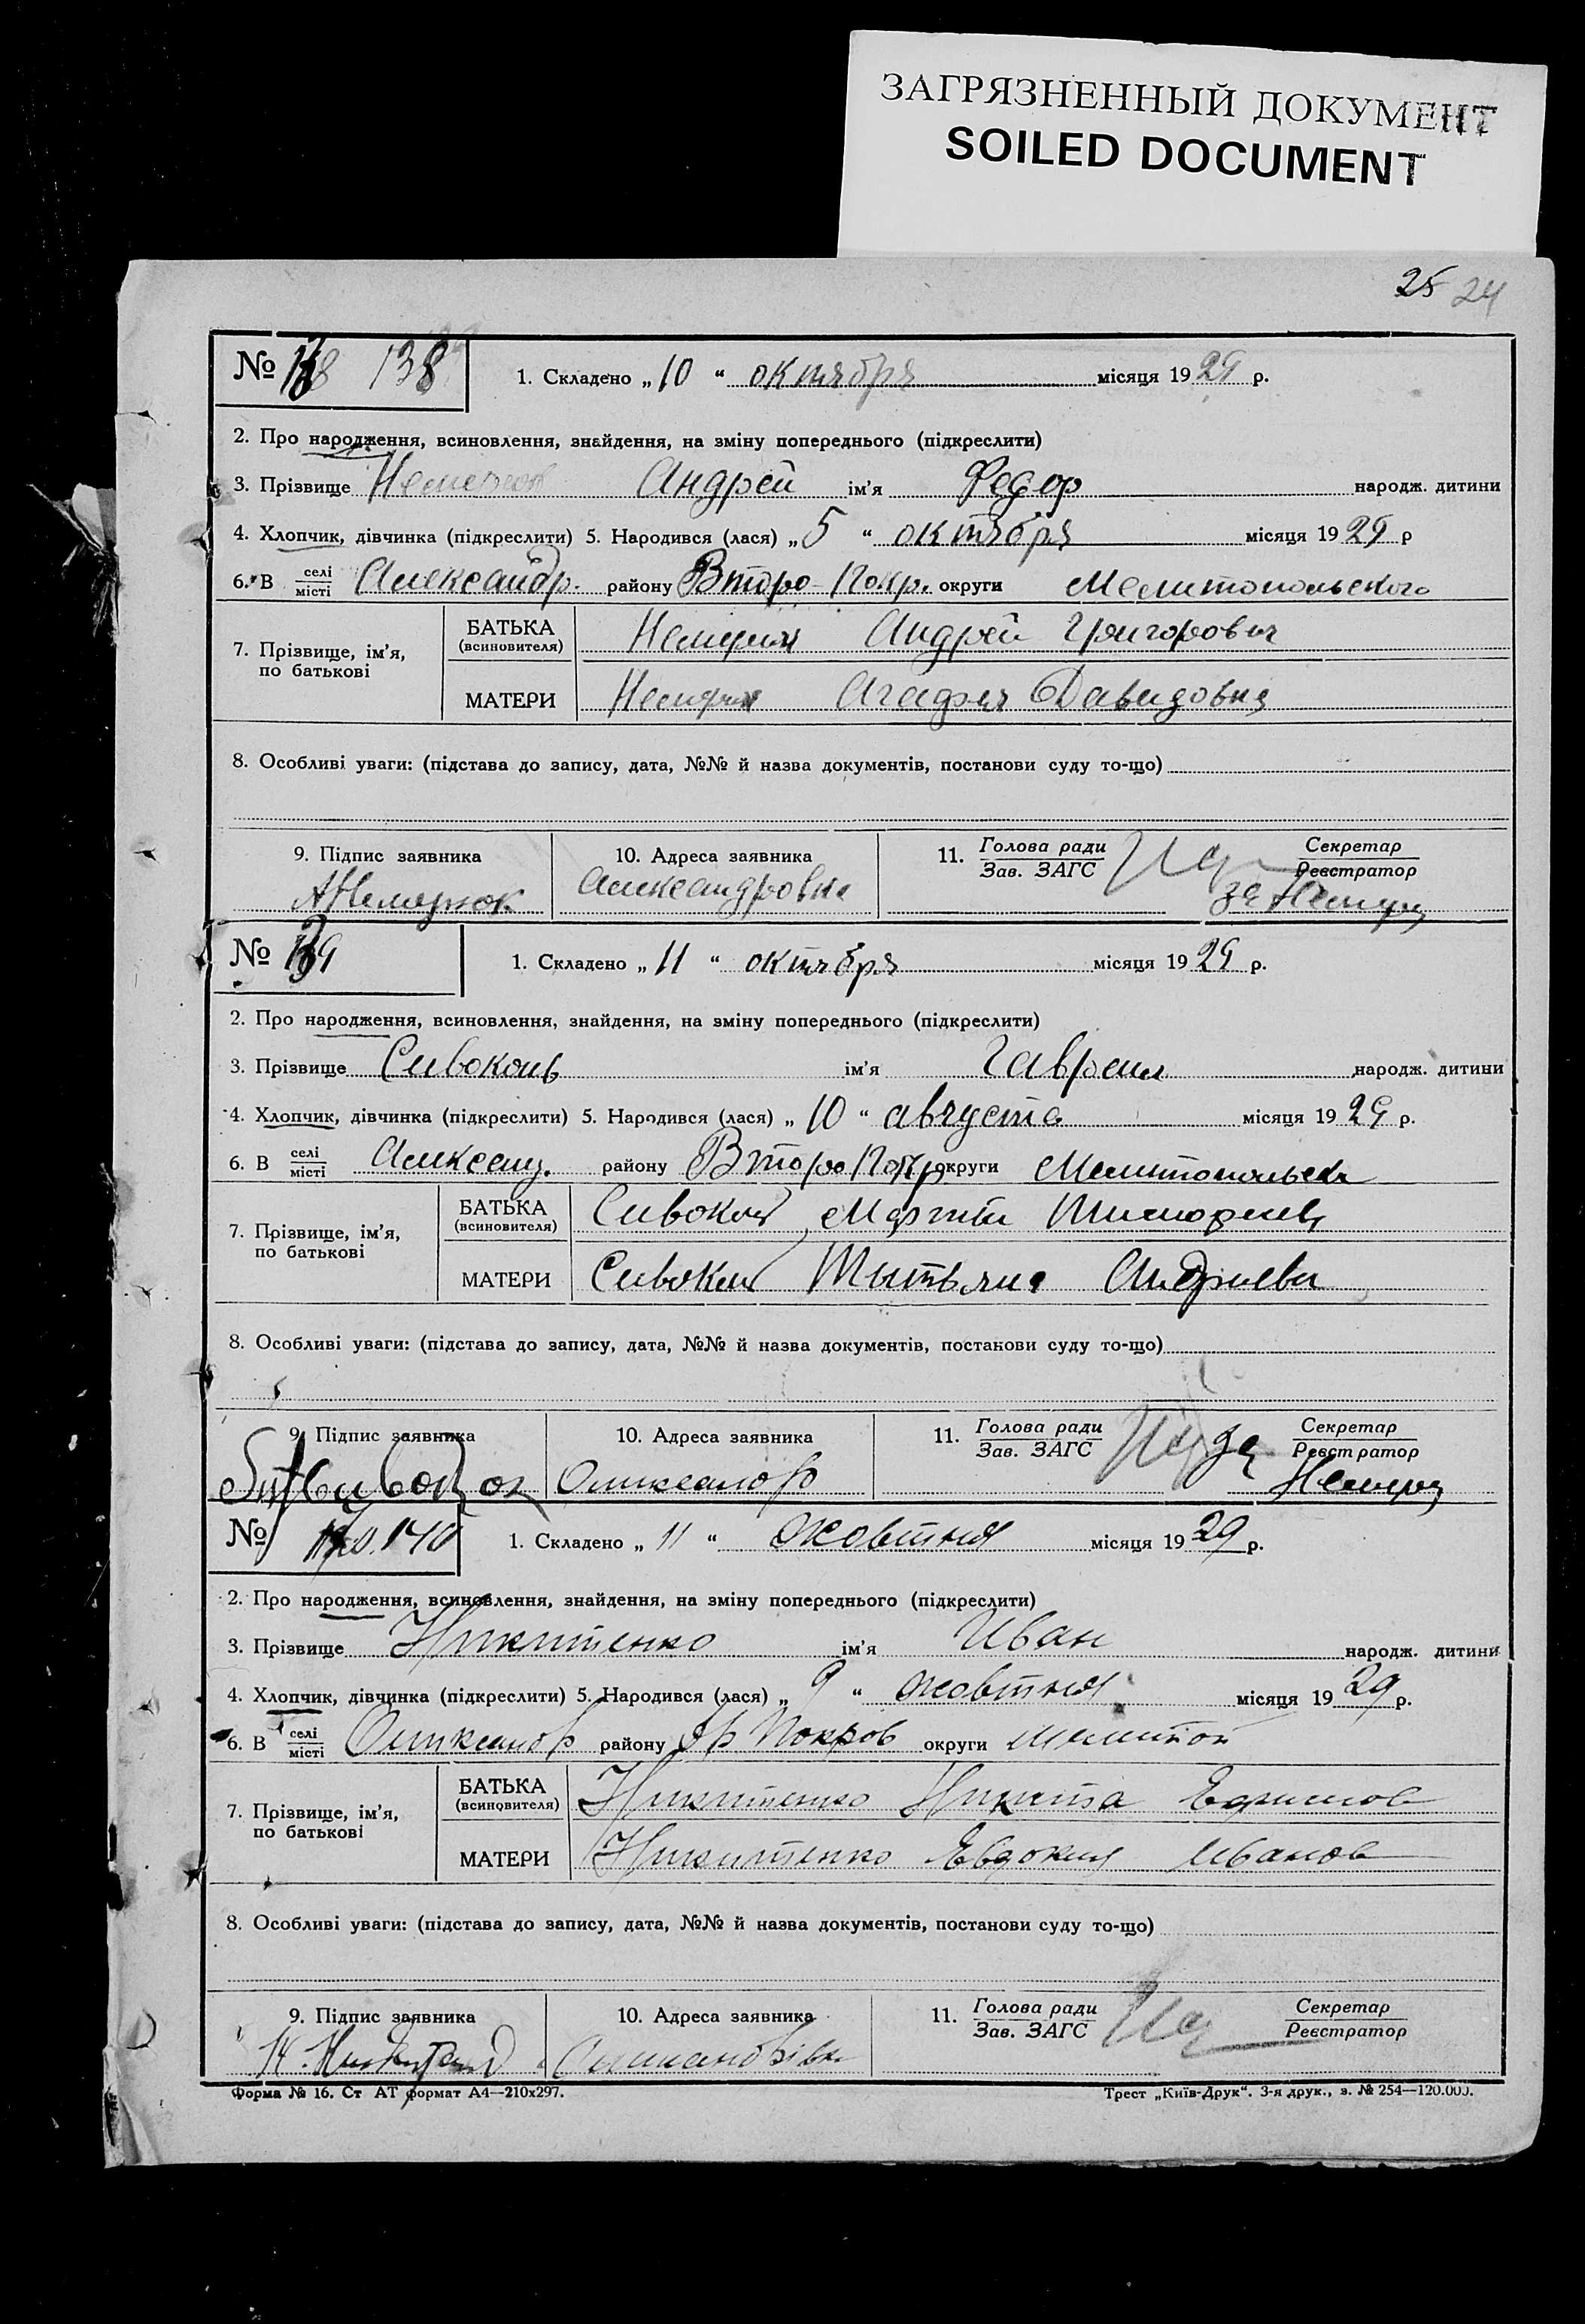 ЗАГРЯЗНЕННЫЙ ДОКУМЕНТ
SOILED DOCUMENT
25 24
№ 138 1. Складено „ 10 “ октября місяця 1929 р.
2. Про народження, всиновлення, знайдення, на зміну попереднього (підкреслити)
3. Прізвище Андрей ім’я Федор народж. дитини
4. Хлопчик, дівчинка (підкреслити) 5. Народився (лася) „ 5 “ октября місяця 1929 р
6. В селі місті Александр. району Второ-Покр. округи Мелитопольского
7. Прізвище, ім’я, по батькові
БАТЬКА (всиновителя) Андрей Григорович
МАТЕРИ Агафия Давидовна
8. Особливі уваги: (підстава до запису, дата, №№ й назва документів, постанови суду то-що)
9. Підпис заявника 10. Адреса заявника 11. Голова ради Зав. ЗАГС Секретар Реєстратор
Александровка за
№ 139 1. Складено „ 11 “ октября місяця 1929 р.
2. Про народження, всиновлення, знайдення, на зміну попереднього (підкреслити)
3. Прізвище Сивоконь ім’я Гавреил народж. дитини
4. Хлопчик, дівчинка (підкреслити) 5. Народився (лася) „ 10 “ августа місяця 1929 р.
6. В селі місті Александ. району Второ Покр округи Мелитопольск
7. Прізвище, ім’я, по батькові
БАТЬКА (всиновителя) Сивоконь
МАТЕРИ Сивоконь Тытьяна Андриевн
8. Особливі уваги: (підстава до запису, дата, №№ й назва документів, постанови суду то-що)
9. Підпис заявника 10. Адреса заявника 11. Голова ради Зав. ЗАГС Секретар Реєстратор
за
№ 140 1. Складено „ 11 “ жовтня місяця 1929 р.
2. Про народження, всиновлення, знайдення, на зміну попереднього (підкреслити)
3. Прізвище Никитенко ім’я Иван народж. дитини
4. Хлопчик, дівчинка (підкреслити) 5. Народився (лася) „ 9 “ жовтня місяця 1929 р.
6. В селі місті району Покров округи Мелитоп
7. Прізвище, ім’я, по батькові
БАТЬКА (всиновителя) Никитенко Никита Ефимов
МАТЕРИ Никитенко Евдокия Иванов
8. Особливі уваги: (підстава до запису, дата, №№ й назва документів, постанови суду то-що)
9. Підпис заявника 10. Адреса заявника 11. Голова ради Зав. ЗАГС Секретар Реєстратор
Форма № 16. Ст АТ формат А4—210х297. Трест „Київ-Друк“. 3-я друк., з. № 254—120.000.